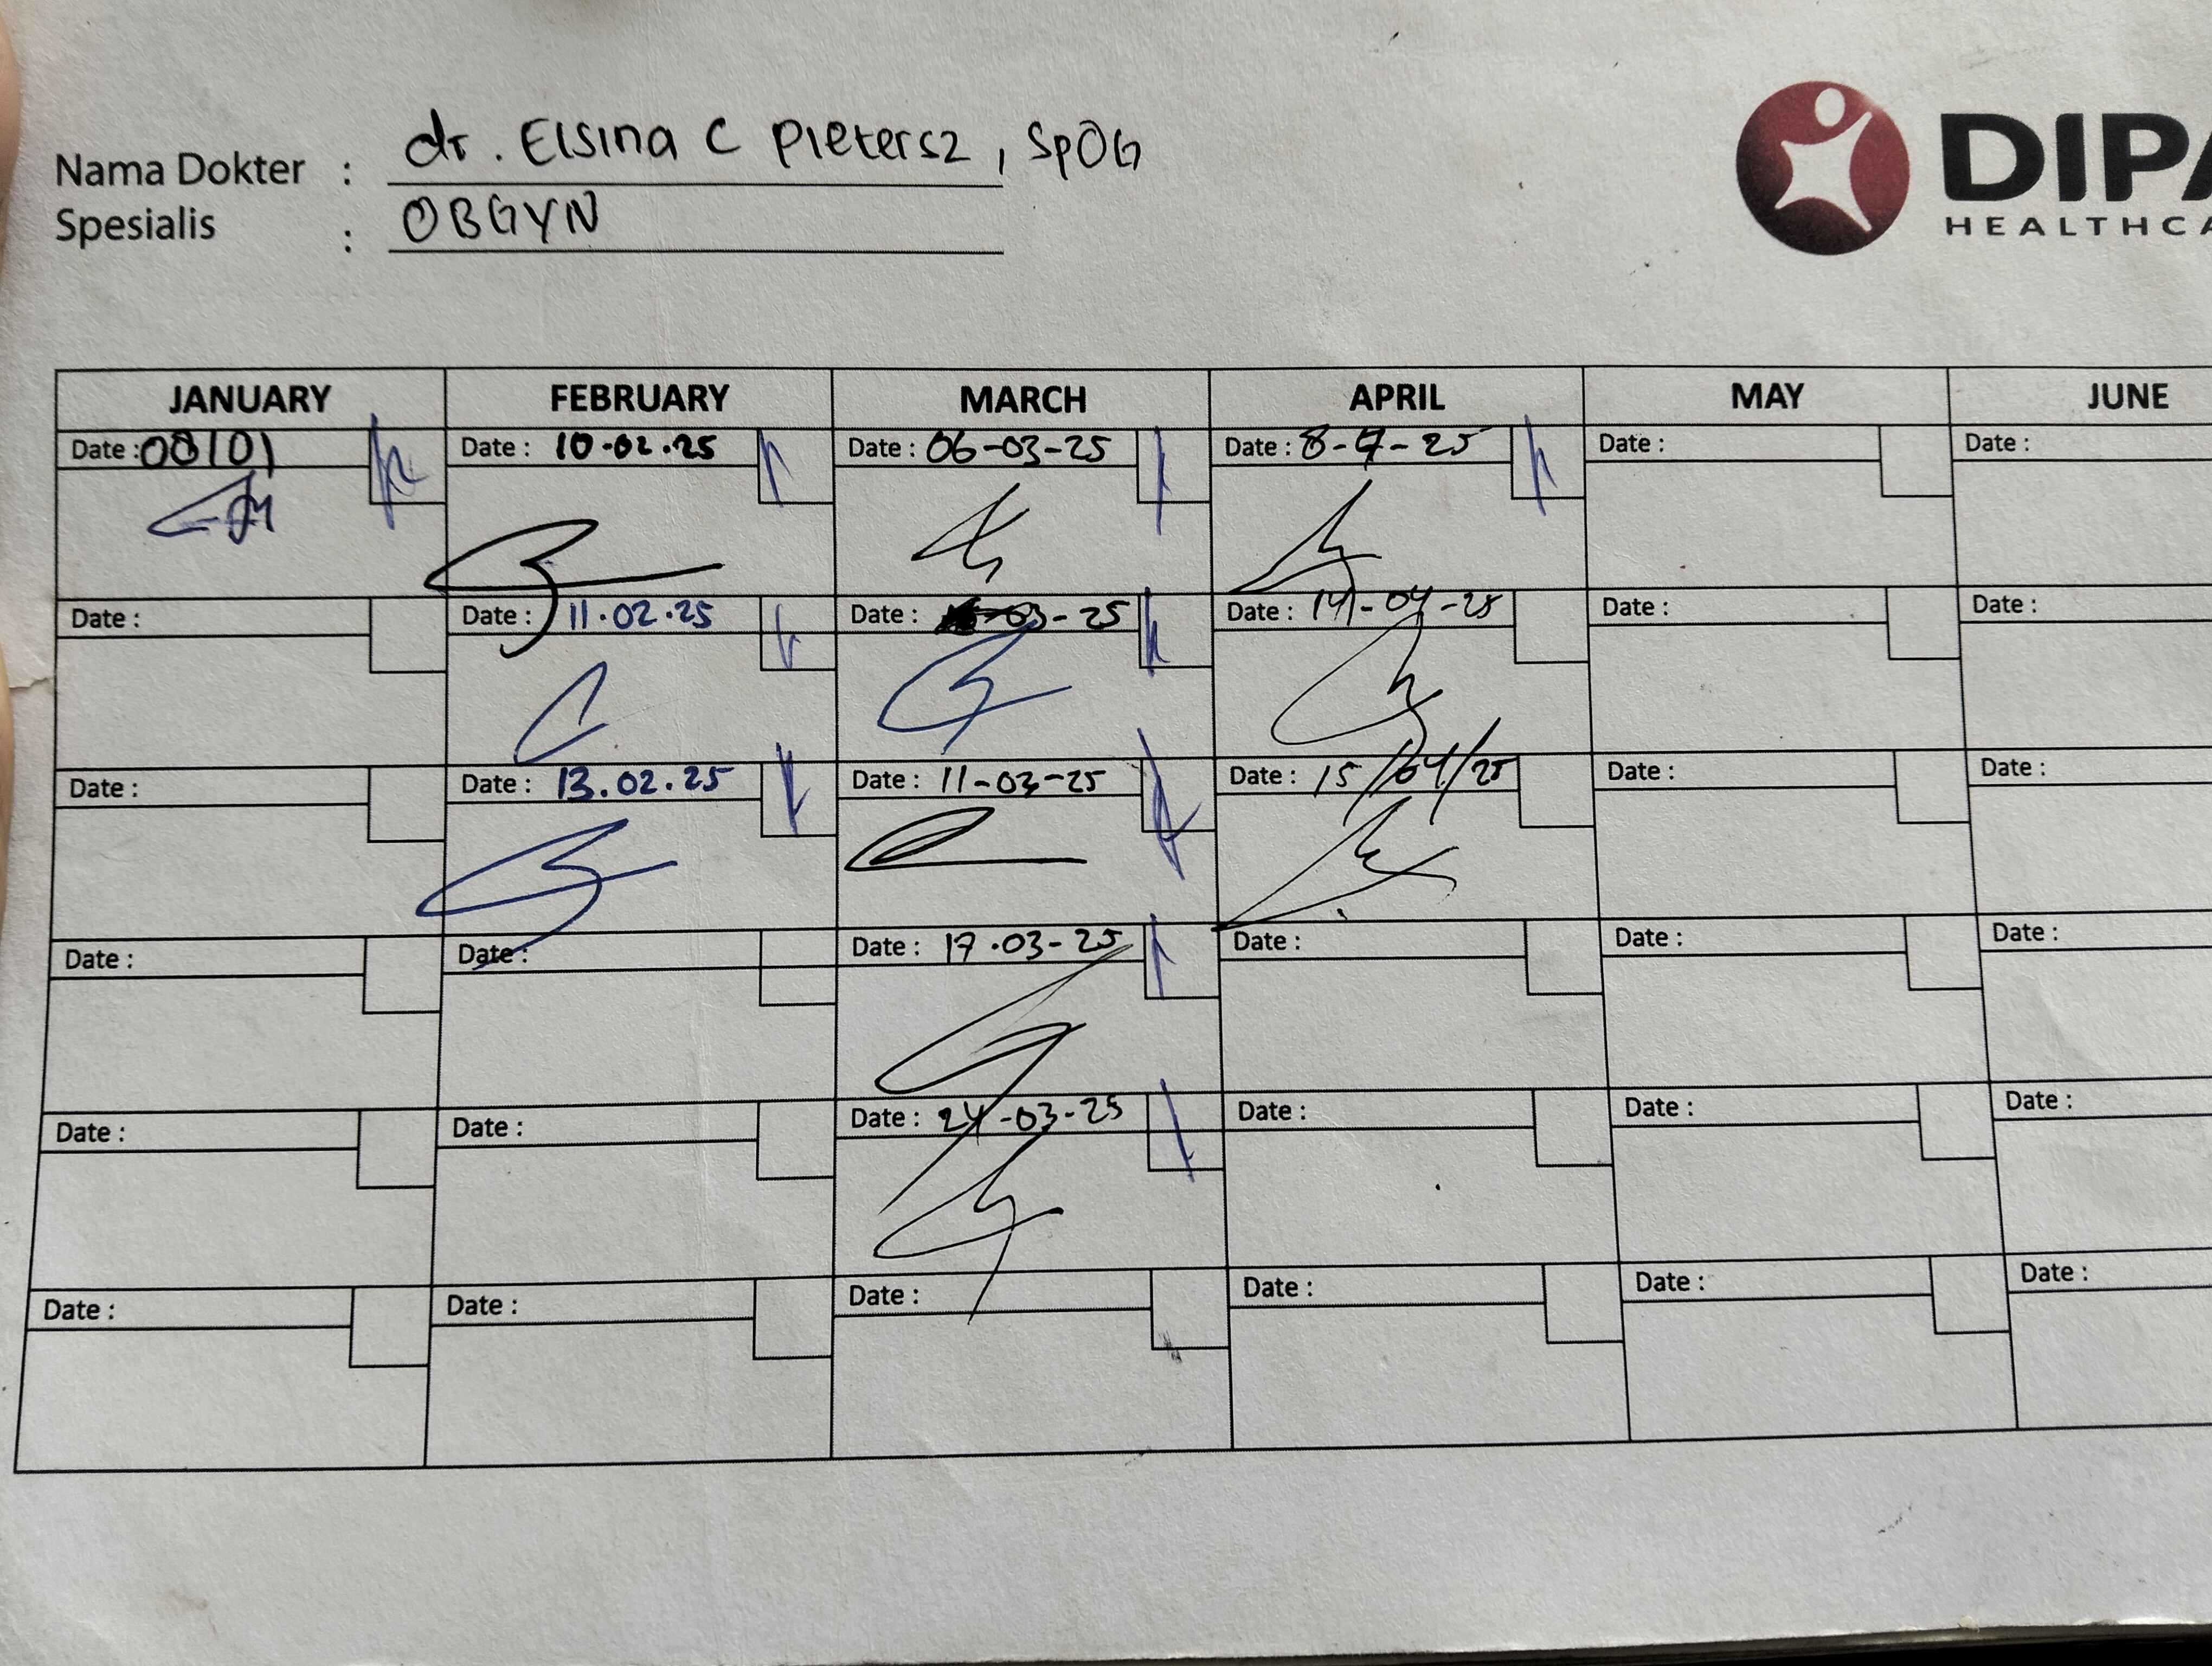 dr. Elsina C Pietersz, SpOG
Nama Dokter :
OBGYN
Spesialis :
DIPA
HEALTHCA
JANUARY FEBRUARY MARCH APRIL MAY JUNE
Date : 08/01 Date : 10-02.25 Date : 06-03-25 Date : 8-4-25 Date : Date :
Date : Date : 11.02.25 Date : 03-25 Date : 14-04-25 Date : Date :
Date : Date : 13.02.25 Date : 11-03-25 Date : 15/04/25 Date : Date :
Date : Date : Date : 17.03-25 Date : Date : Date :
Date : Date : Date : 24-03-25 Date : Date : Date :
Date : Date : Date : Date : Date : Date :